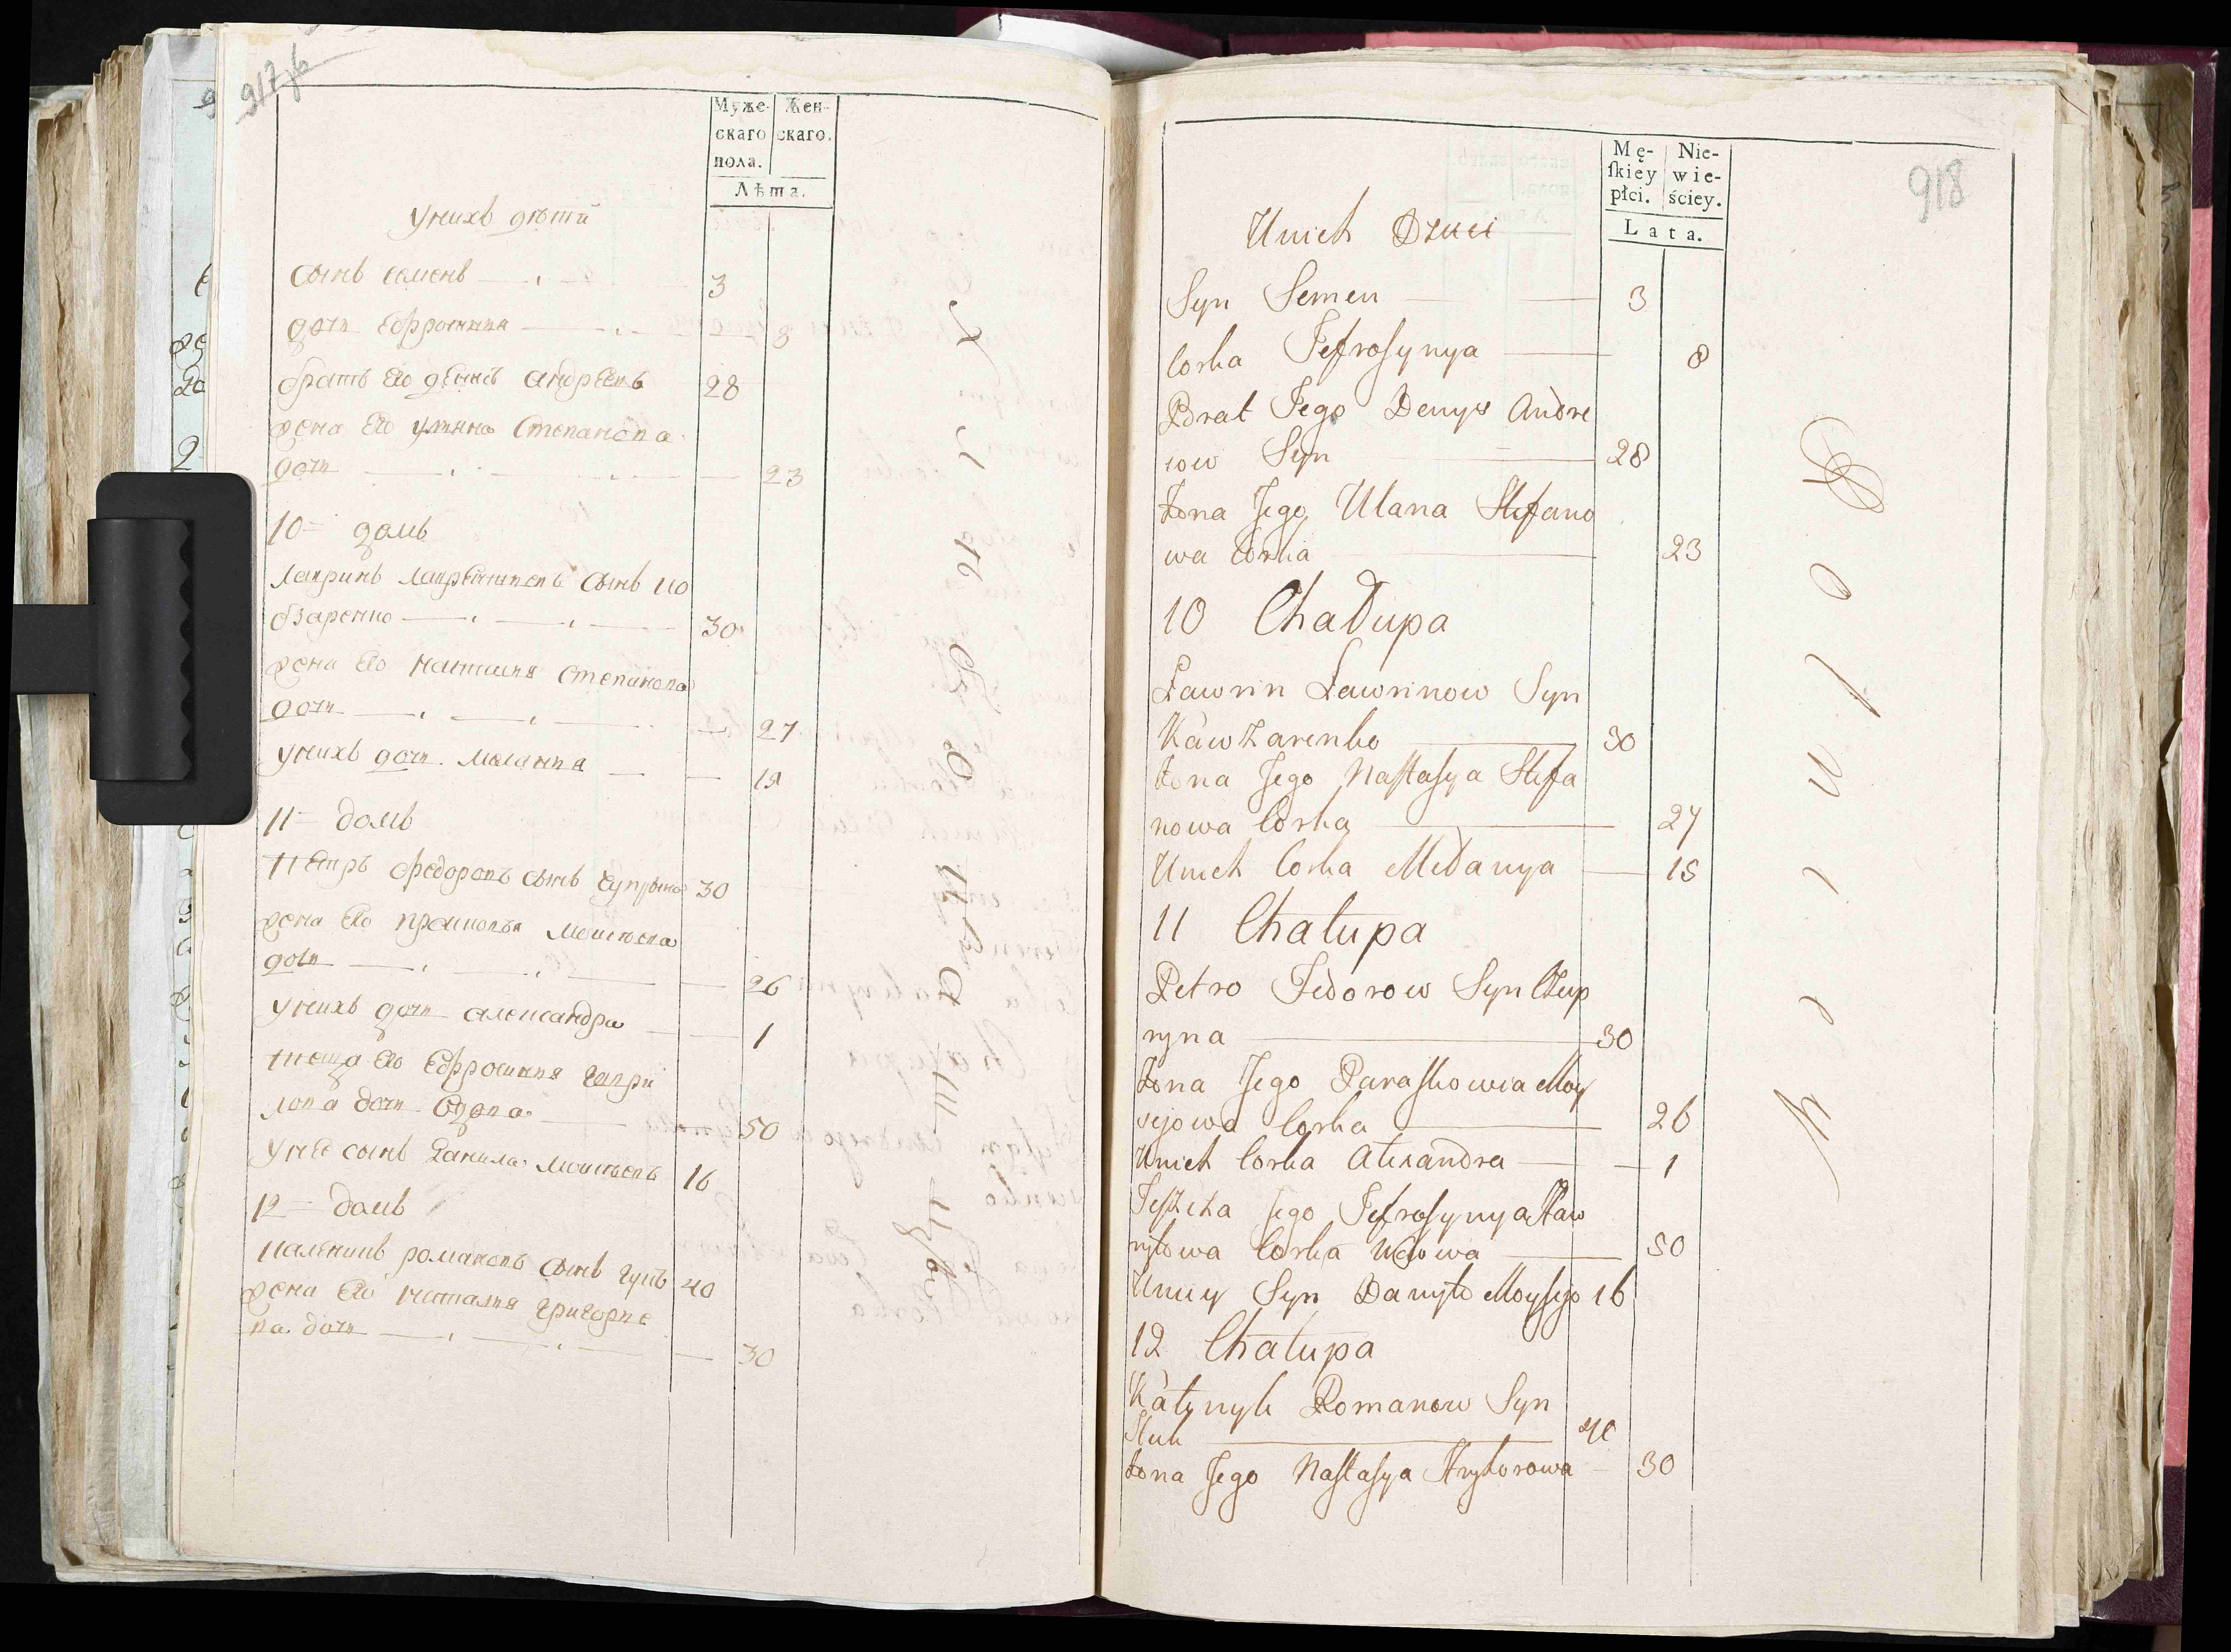 917об
Муже-
скаго
пола.
Жен-
скаго.
Лѣта.
У нихъ дѣти
сынъ семенъ 3
дочь Ефросиния 8
братъ Его денисъ андреевъ 28
жена Его улияна Степанова
дочь 23
10 домъ
Лавринъ
30
жена Его настасия степанова
дочь 27
У нихъ дочь мелания 15
11 домъ
Петръ федоровъ сынъ 30
жена Его мойсеева
дочь 26
У нихъ дочь александра 1
теща Его Ефросиния гаври
лова дочь вдова 50
У неё сынъ данила мойсеевъ 16
12 домъ
каленикъ романовъ сынъ гукъ 40
жена Его настасия григорие
ва дочь 30
918
Mę-
ſkiey
płci.
Nie-
wie-
ściey.
Lata.
Unich Dzieci
Syn Semen 3
Corka Jefrosynya 8
Brat Jego Denys Andre
iow Syn 28
Żona Jego Ulana Stefano
wa Corka 23
10 Chałupa
Ławrin Ławrinow Syn
Kawżarenko 30
Żona Jego Nastasya Stefa
nowa Corka 27
Unich Corka Mełanya 15
11 Chałupa
Petro Fedorow Syn Czup
ryna 30
Żona Jego Paraskowia Moy
sejowa Corka 26
Unich Corka Alexandra 1
Teszcza Jego Jefrosynya Haw
ryłowa Corka Wdowa 50
Uniey Syn Danyło Moysejo 16
12 Chałupa
Kałynyk Romanow Syn
Huk 40
Żona Jego Nastasya Hryhorowa 30